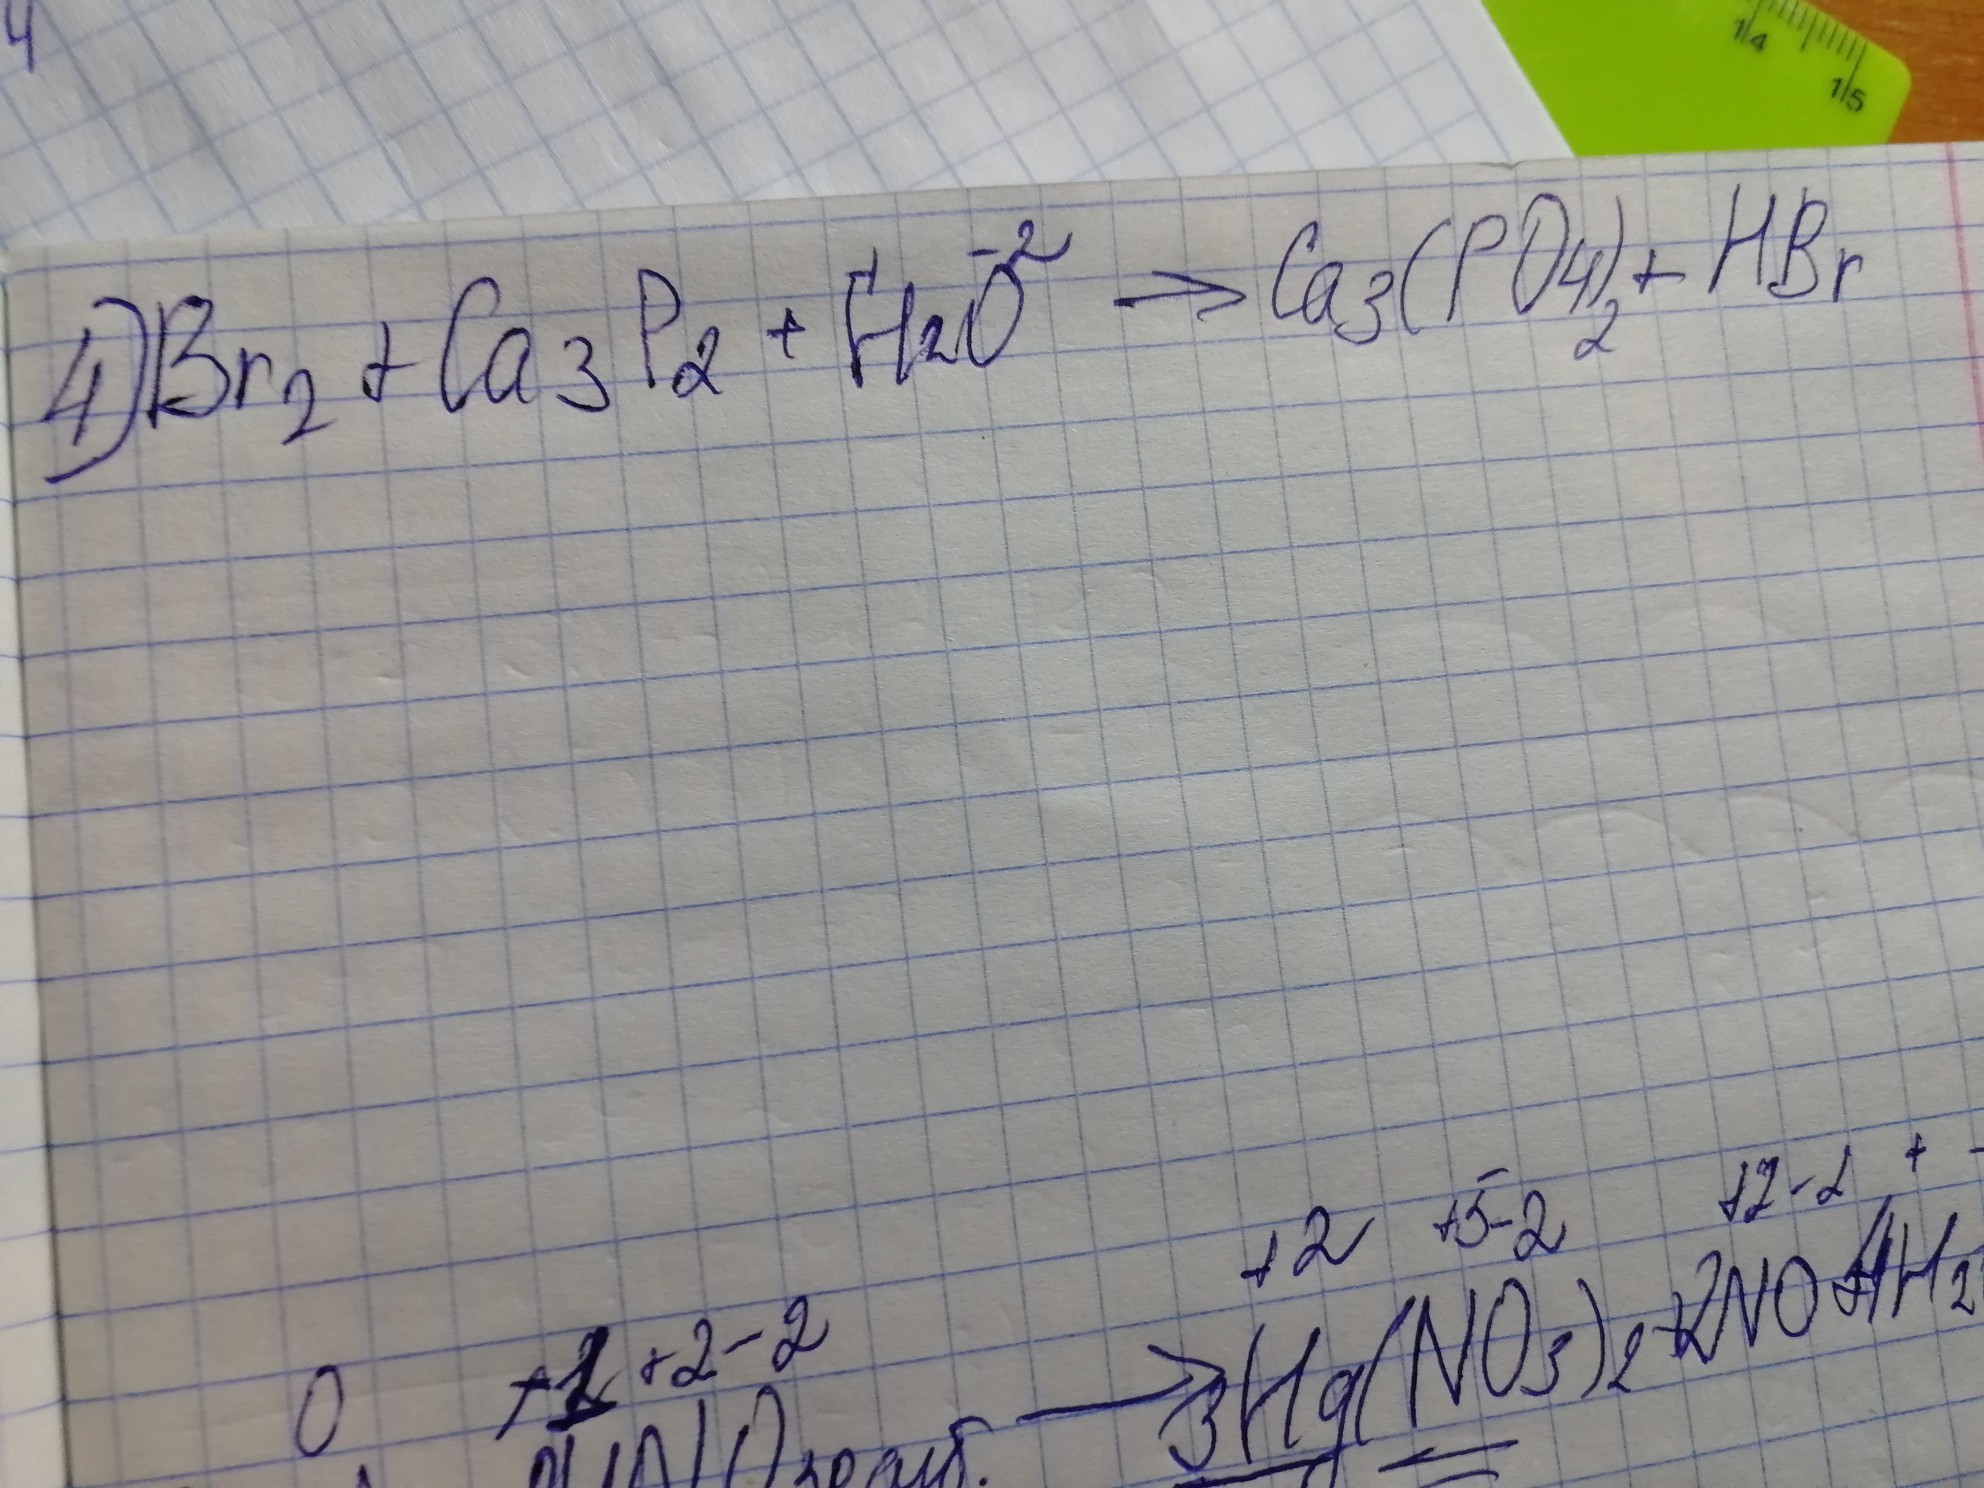 4
14
15
4) Br₂ + Ca₃P₂ + H₂O⁻² → Ca₃(PO₄)₂ + HBr
+2 +5-2 +2-2 + -
0 +1 +2-2
→ 3Hg(NO₃)₂ + 2NO + 4H₂